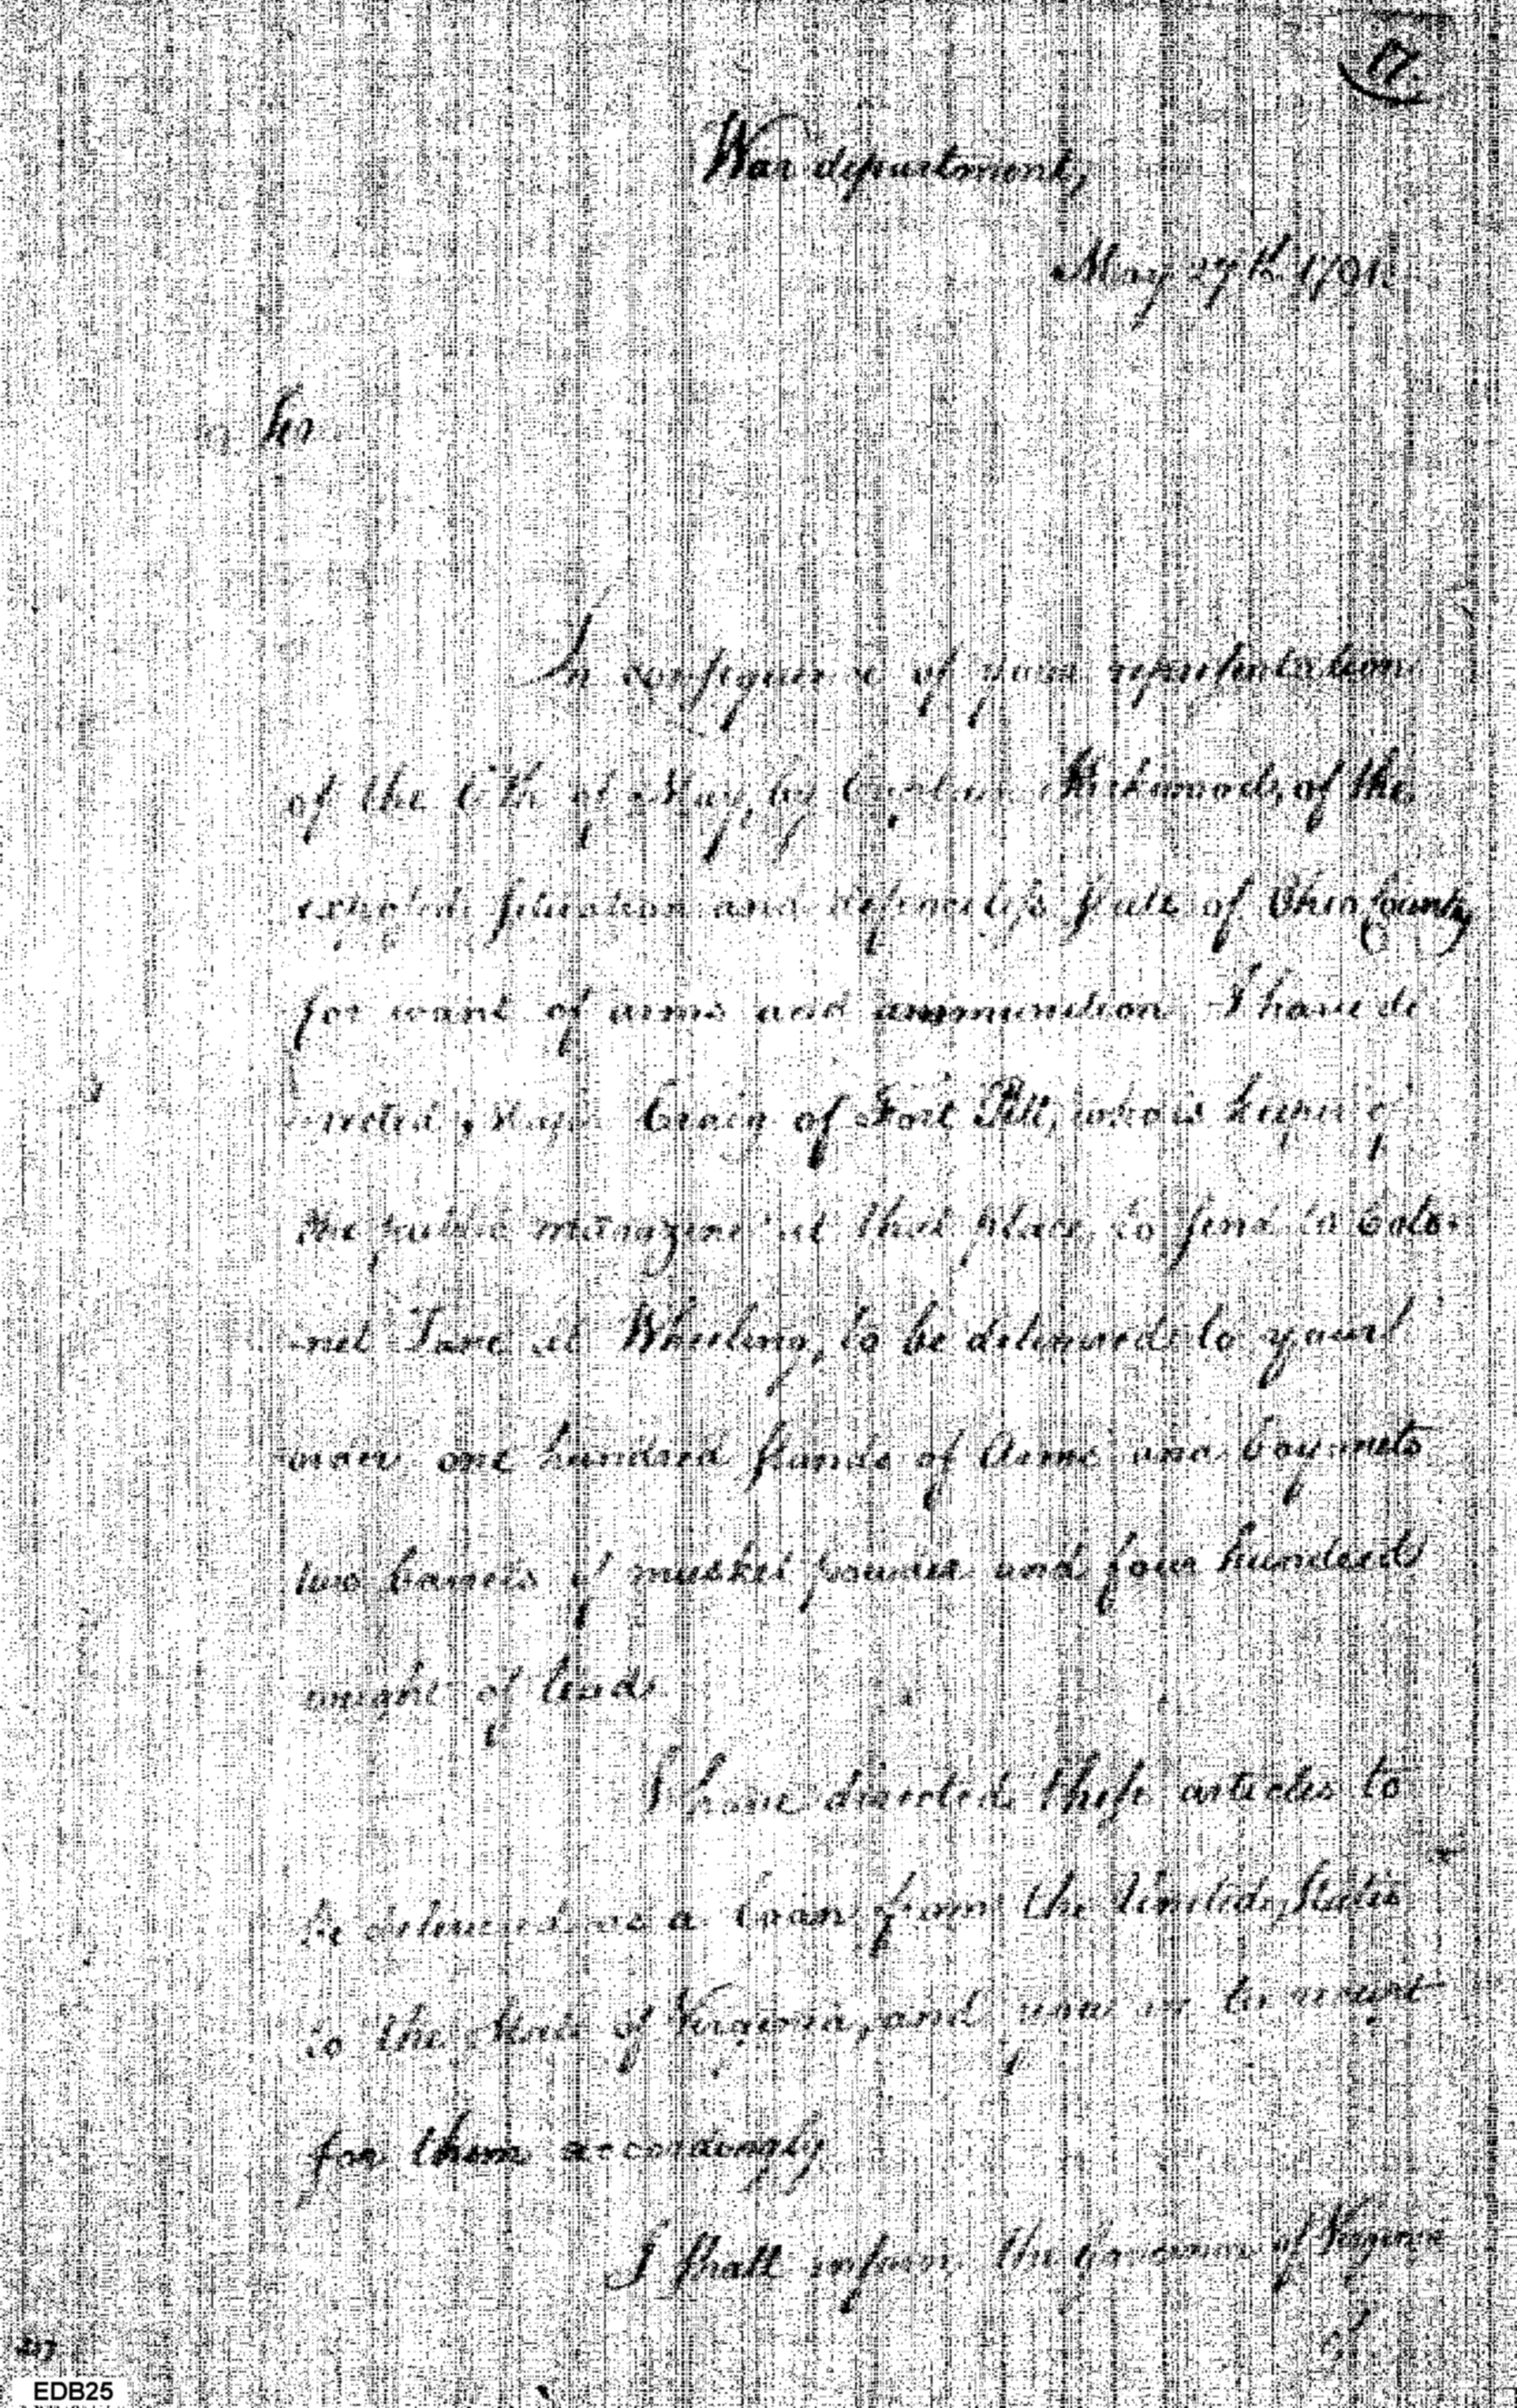 17.
War department,
May 27th 1791.
Sir
In consequence of your representation
of the 6th of May, by Captain Kirkwood, of the
exposed situation and defenceless state of Ohio County
for want of arms and ammunition I have di
-rected Major Craig of Fort Pitt, who is keeper of
the public magazine at that place, to send to Colo-
-nel at Wheeling, to be delivered to your
order one hundred stands of Arms and bayonets
two barrels of musket powder and four hundred
weight of lead.
I have directed these articles to
be delivered as a loan from the United States
to the State of Virginia, and you to receipt
for them accordingly
I shall inform the Governor of Virginia
of
217
EDB25